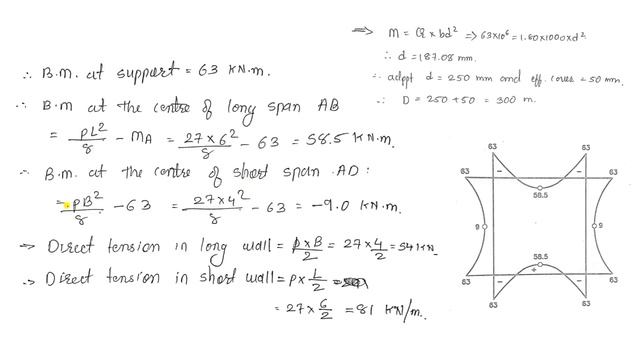 ⇒ M = Q × bd² ⇒ 63×10⁶ = 1.80×1000×d²
∴ d = 187.08 mm.
∴ adopt d = 250 mm and eff. cover = 50 mm.
∴ D = 250+50 = 300 m.
∴ B.M. at support = 63 KN.m.
∴ B.M at the centre of long span AB
= PL²/8 - MA = 27×6²/8 - 63 = 58.5 KN.m.
∴ B.M. at the centre of short span AD:
= PB²/8 - 63 = 27×4²/8 - 63 = -9.0 KN.m.
→ Direct tension in long wall = P×B/2 = 27×4/2 = 54 KN.
→ Direct tension in short wall = P× L/2 =
= 27×6/2 = 81 KN/m.
63 63
63 − − 63
58.5
9 9
58.5
+
63 − − 63
63 63